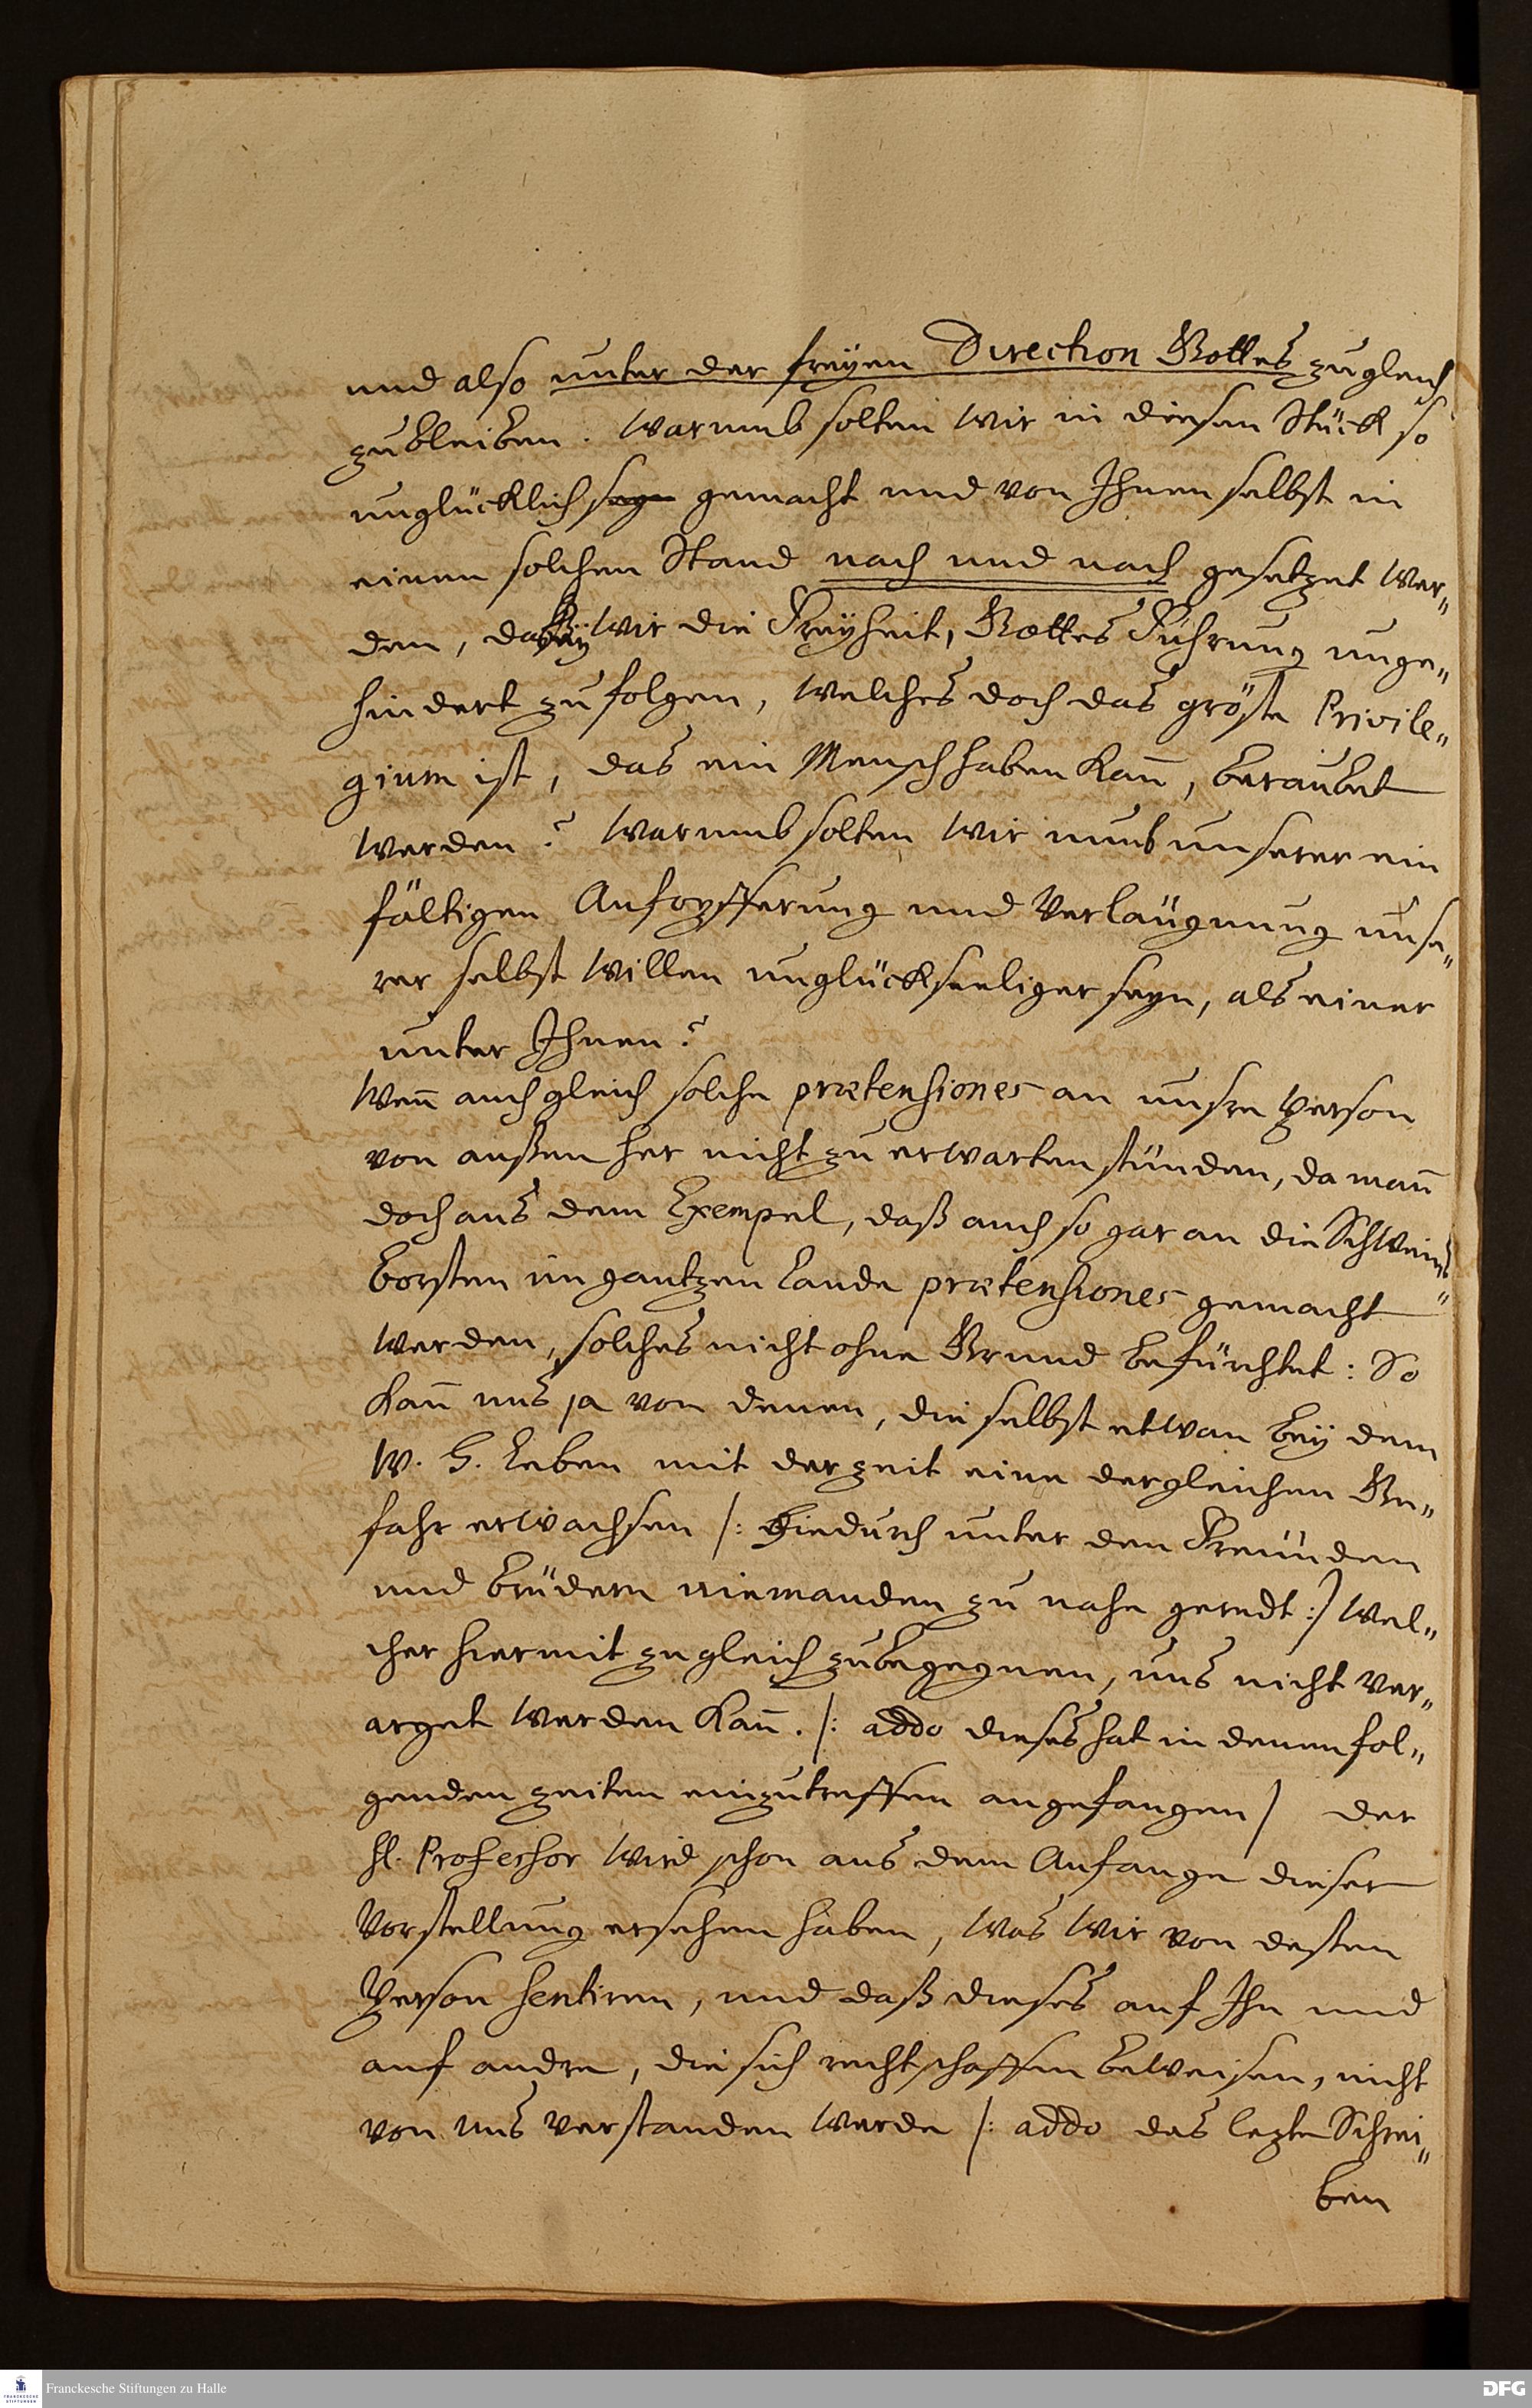 und also unter der freyen Direction Gottes zugleich
zubleiben. Warumb solten wir in diesen Stück so
unglücklich seyn gemacht und von Ihnen selbst in
einen solchen Stand nach und nach gesetzet wer„
den, daß wir die Freyheit, Gottes Führung unge„
hindert zu folgen, welches doch das gröste Privile„
gium ist, das ein Mensch haben kan̄, beraubet
werden? Warumb solten wir umb unserer ein
fältigen Aufopfferung und Verläugnung unse„
rer selbst willen unglückseeliger seyn, als einer
unter Ihnen?
Wen̄ auch gleich solche prætensiones an unsre Person
von außen her nicht zu erwarten stünden, da man̄
doch aus dem Exempel, daß auch so gar an die Schweins„
borsten im gantzen Lande prætensiones gemacht
werden, solches nicht ohne Grund befürchtet: So
kan̄ uns ja von denen, die selbst etwan bey dem
W. H. Leben mit der zeit eine dergleichen Ge„
fahr erwachsen /: Hiedurch unter den Freunden
und Brüdern niemanden zu nahe geredt :/ wel„
cher hiermit zugleich zubegegnen, uns nicht ver„
arget werden kan̄. /: addo dieses hat in denen fol„
genden zeiten einzutreffen angefangen / der
H. Professor wird schon aus dem Anfange dieser
Vorstellung ersehen haben, was wir von deßen
Person sentiren, und daß dieses auf Ihn und
auf andre, die sich rechtschaffen beweisen, nicht
von uns verstanden werde /: addo das lezte Schrei„
ben
Franckesche Stiftungen zu Halle
DFG